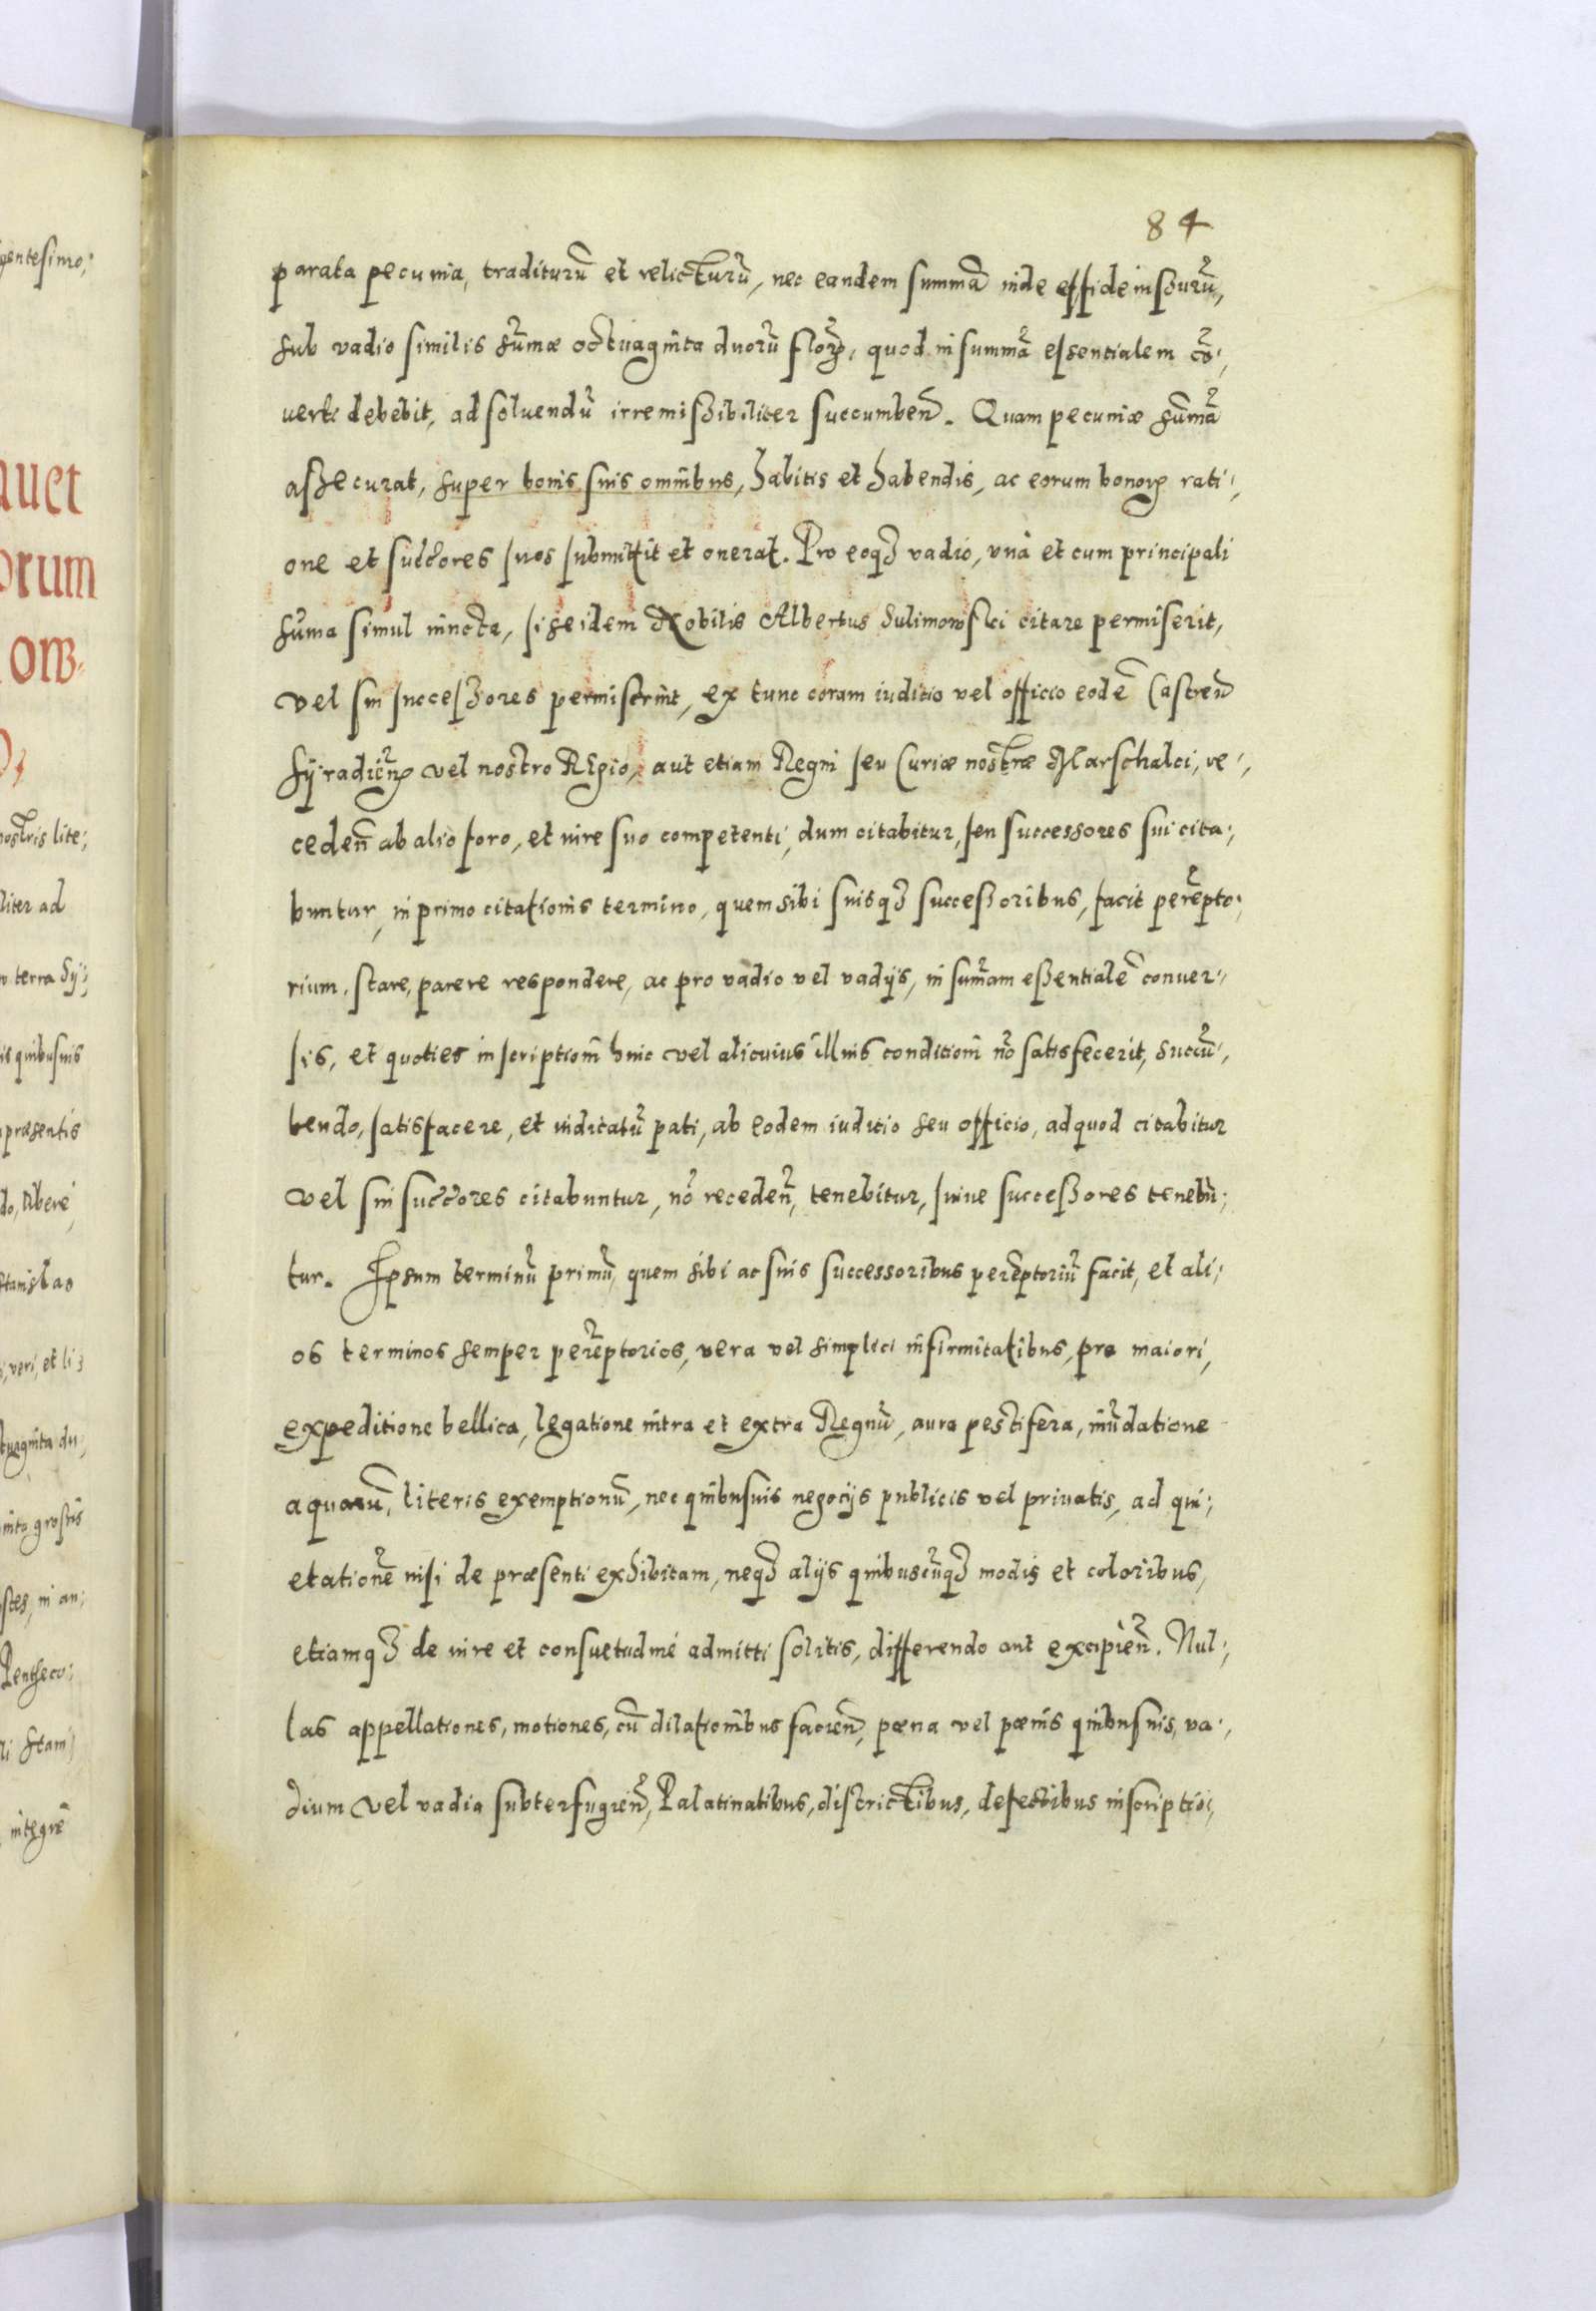 84
parata pecunia, traditurũ et relicturũ, nec eandem summã inde effideiussurũ,
sub vadio similis sũmæ octuaginta duorũ florꝝ, quod in summã essentialem cõ,
verti debebit, ad soluendũ irremissibiliter succumbeñ. Quam pecuniæ sũmã
assecurat, super bonis suis omnibus, habitis et habendis, ac eorum bonorꝝ rati,
one et succores suos submittit et onerat. Pro eoqꝫ vadio, vnà et cum principali
sũma simul iuncta, si se idem Nobilis Albertus Sulimowski citare permiserit,
vel sui successores permiserint, ex tunc coram iuditio vel officio eodẽ Castreñ
Syradieñ vel nostro Regio, aut etiam Regni seu Curiæ nostræ Marschalci, re,
cedeñ ab alio foro, et iure suo competenti, dum citabitur, seu successores sui cita,
buntur, in primo citationis termino, quem sibi suisqꝫ successoribus, facit perẽpto,
rium, stare, parere respondere, ac pro vadio vel vadijs, in sum̃am essentialẽ conuer,
sis, et quoties inscriptioni huic vel alicuius illius conditioni nõ satisfecerit, succũ,
bendo, satisfacere, et iudicatũ pati, ab eodem iuditio seu officio, ad quod citabitur
vel sui succores citabuntur, nõ recedeñ, tenebitur, suiue successores tenebũ,
tur. Ipsum terminũ primũ, quem sibi ac suis successoribus perẽptoriũ facit, et ali,
os terminos semper perẽptorios, vera vel simplici infirmitatibus, pro maiori,
expeditione bellica, legatione intra et extra Regnũ, aura pestifera, inũdatione
aquarũ, literis exemptionũ, nec quibusuis negocijs publicis vel priuatis, ad qui,
etationẽ nisi de præsenti exhibitam, neqꝫ alijs quibuscũqꝫ modis et coloribus,
etiamqꝫ de iure et consuetudine admitti solitis, differendo aut excipieñ. Nul,
las appellationes, motiones, cũ dilationibus facieñ, pœna vel pœnis quibusuis, va,
dium vel vadia subterfugieñ, Palatinatibus, districtibus, defectibus inscriptioi,